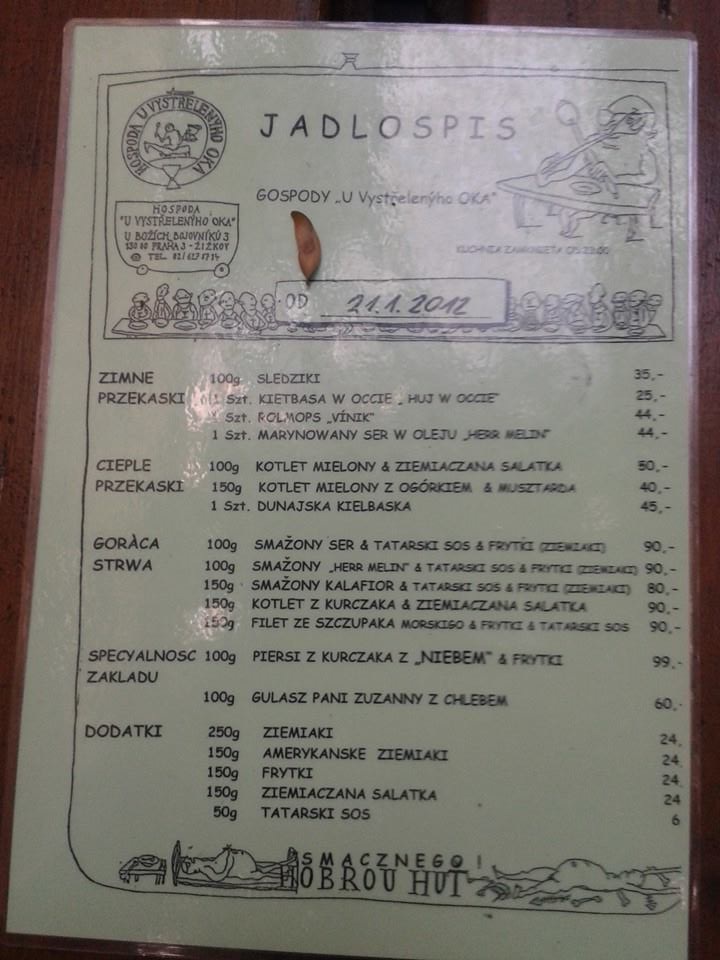 HOSPODA U VYSTŘELENÝHO OKA
JADLOSPIS
GOSPODY „U Vystřelenýho OKA"
HOSPODA
"U VYSTŘELENÝHO OKA"
U BOŽÍCH BOJOVNÍKŮ 3
130 00 PRAHA 3 - ŽIŽKOV
TEL. 02/627 87 14
KUCHNIA ZAMKNIETA OD 23:00
OD 21.1.2012
ZIMNE 100g SLEDZIKI 35,-
PRZEKASKI 1 Szt. KIETBASA W OCCIE „ HUJ W OCCIE" 25,-
1 Szt. ROLMOPS „VÍNIK" 44,-
1 Szt. MARYNOWANY SER W OLEJU „HERR MELIN" 44,-
CIEPLE 100g KOTLET MIELONY & ZIEMIACZANA SALATKA 50,-
PRZEKASKI 150g KOTLET MIELONY Z OGÓRKIEM & MUSZTARDA 40,-
1 Szt. DUNAJSKA KIELBASKA 45,-
GORÀCA 100g SMAŻONY SER & TATARSKI SOS & FRYTKI (ZIEMIAKI) 90,-
STRWA 100g SMAŻONY „HERR MELIN" & TATARSKI SOS & FRYTKI (ZIEMIAKI) 90,-
150g SMAŻONY KALAFIOR & TATARSKI SOS & FRYTKI (ZIEMIAKI) 80,-
150g KOTLET Z KURCZAKA & ZIEMIACZANA SALATKA 90,-
150g FILET ZE SZCZUPAKA MORSKIGO & FRYTKI & TATARSKI SOS 90,-
SPECYALNOSC 100g PIERSI Z KURCZAKA Z „NIEBEM" & FRYTKI 99,-
ZAKLADU
100g GULASZ PANI ZUZANNY Z CHLEBEM 60,-
DODATKI 250g ZIEMIAKI 24,
150g AMERYKANSKE ZIEMIAKI 24
150g FRYTKI 24
150g ZIEMIACZANA SALATKA 24
50g TATARSKI SOS 6
SMACZNEGO !
DOBROU HUŤ